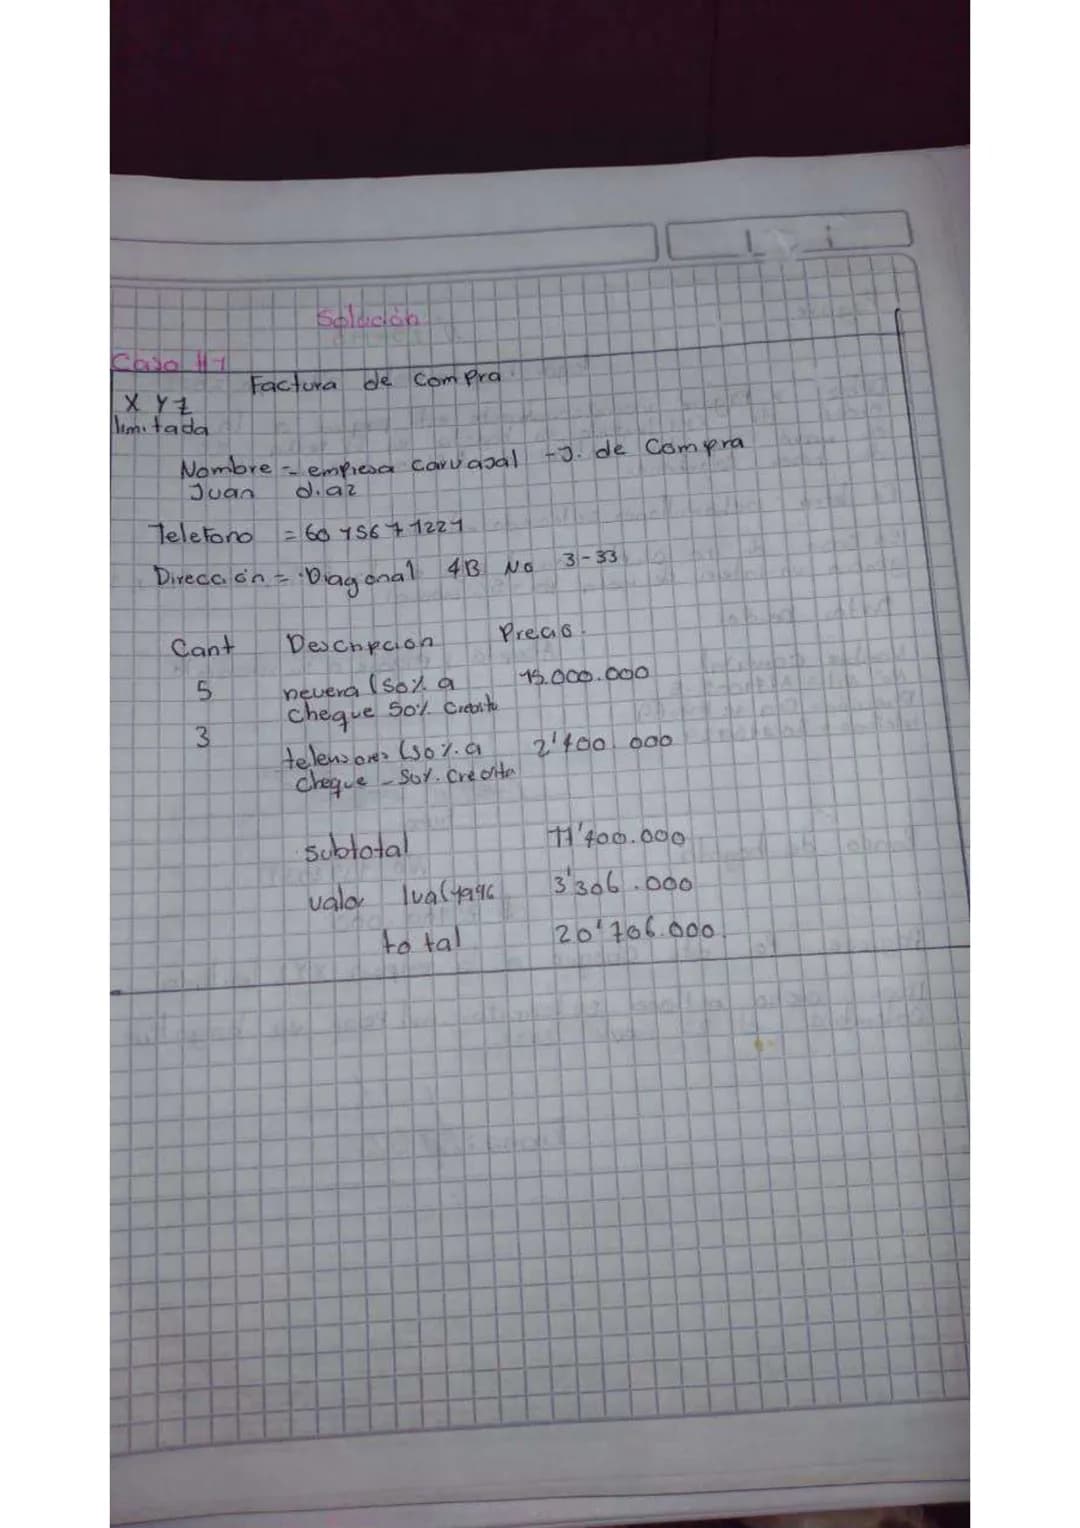 Solución
Caso #1
Factura de Compra
X Y Z
limitada
Nombre = empresa carvajal - J. de Compra
Juan diaz
Telefono = 60 156 7 1221
Dirección = Diagonal 4B No 3-33
Cant Descripcion Precio.
5 nevera (50% a 15.000.000
cheque 50% Credito
3
televisores (50%.a 2'400.000
cheque - 50%. Credito
subtotal 17'400.000
valor Iva(19%
3'306.000
total 20'706.000.